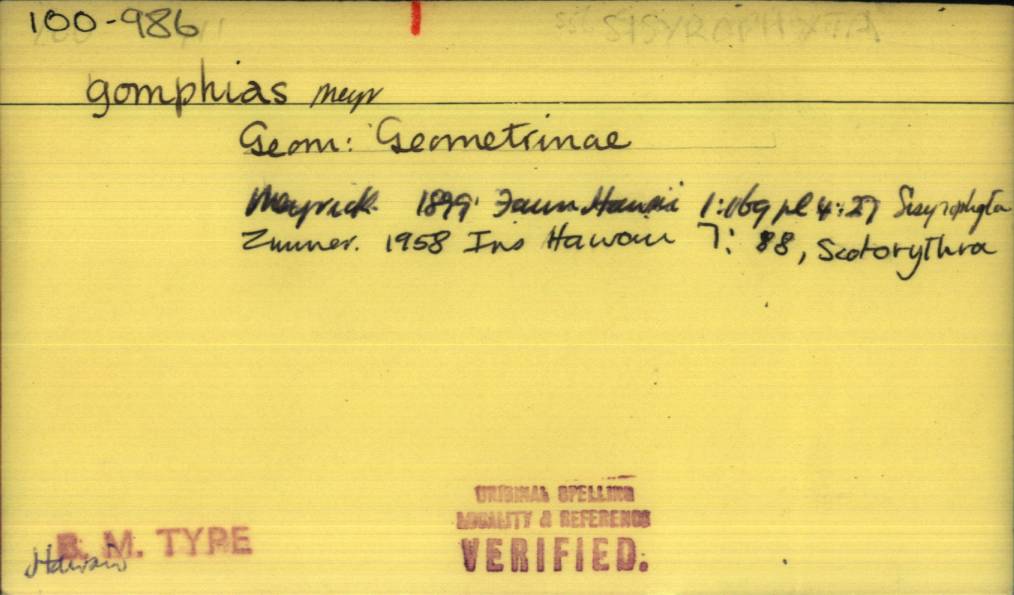 100-986
gomphias Meyr
Geom: Geometrinae
Meyrick 1899 Faun Hawaii 1:169 pl 4:27 Sisyrophyta
Zimmer. 1958 Ins Hawaii 7: 88, Scotorythra
ORIGINAL SPELLING
LOCALITY & REFERENCE
VERIFIED.
B. M. TYPE
Hawaii